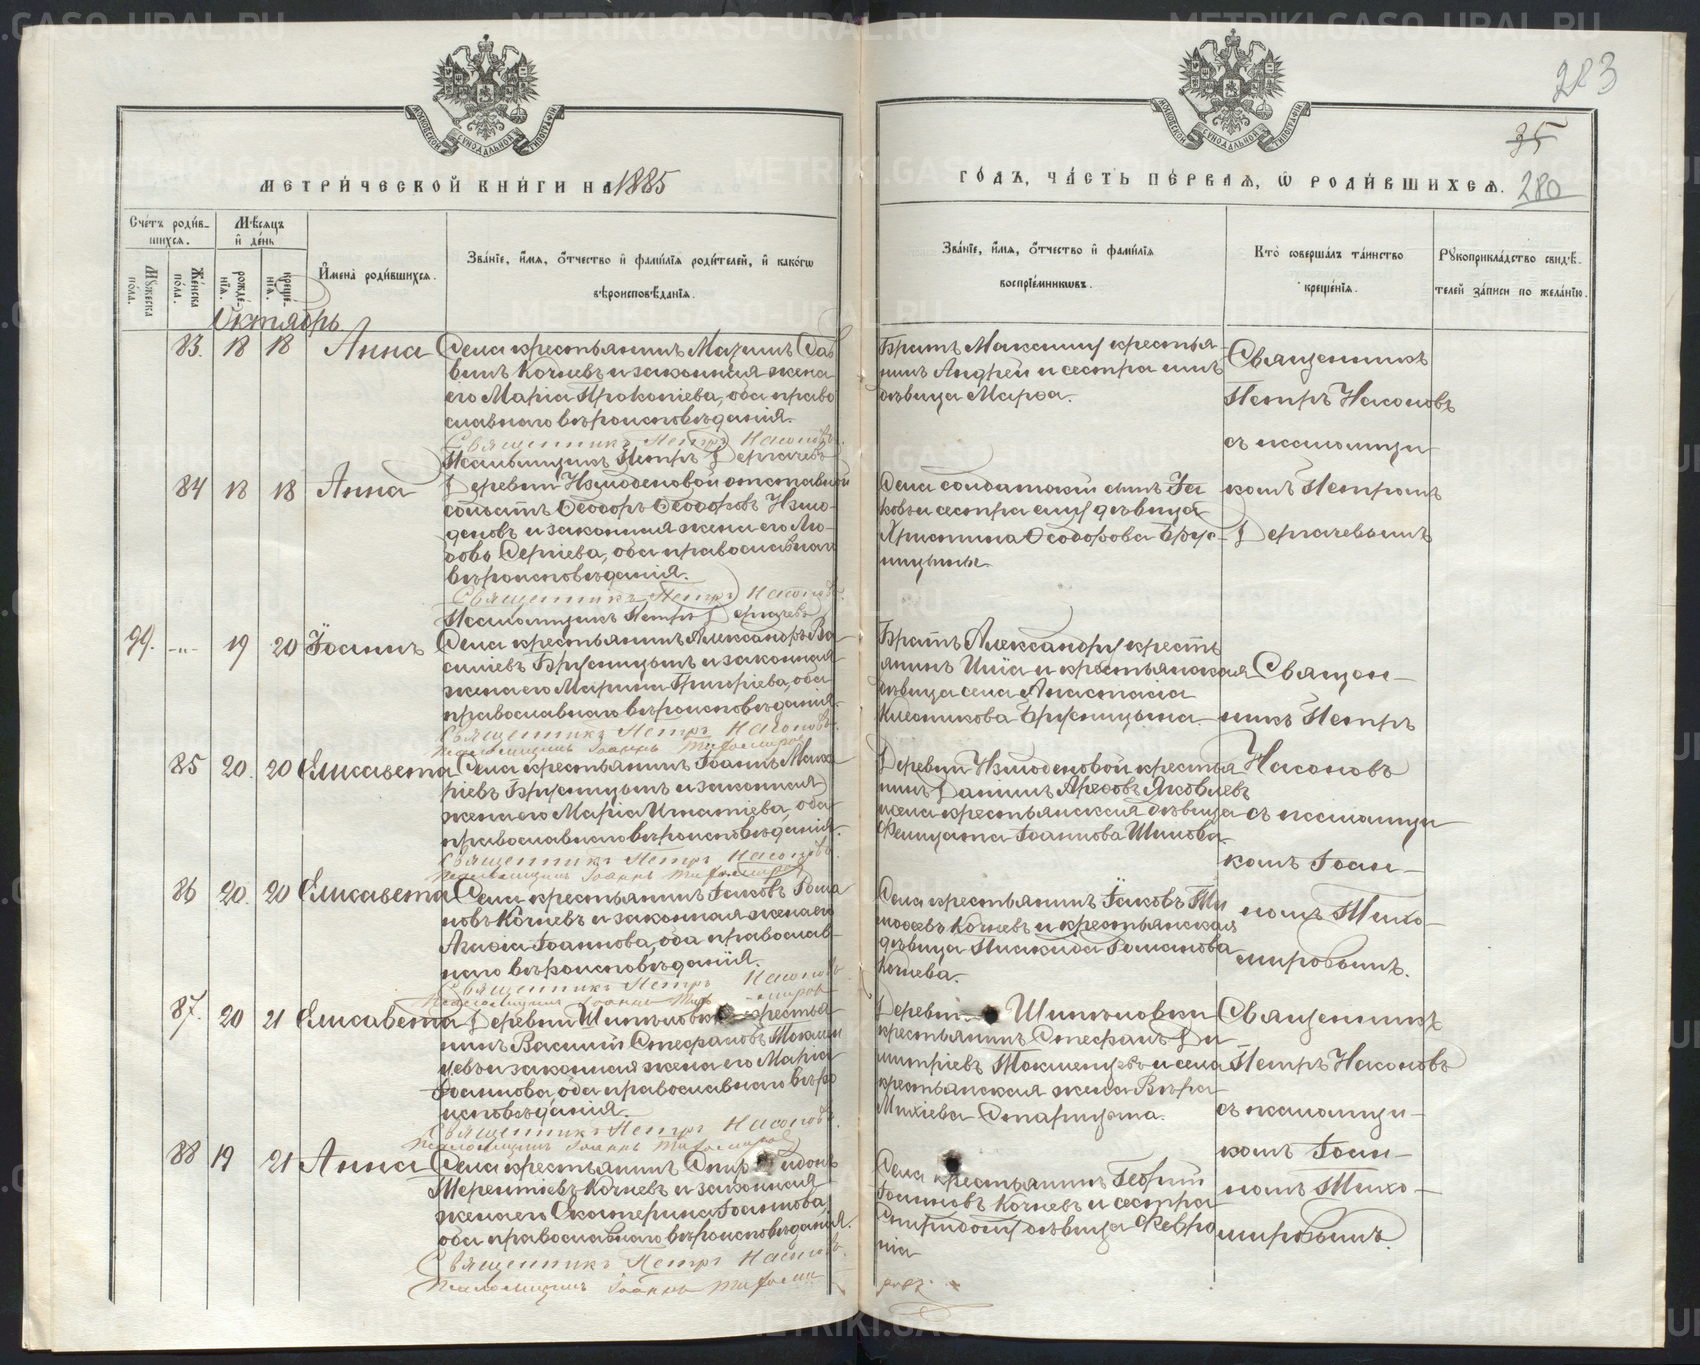 283
35
280
МЕТРИ́ЧЕСКОЙ КНИ́ГИ НА 1885
ГО́ДЪ, ЧА́СТЬ ПЕ́РВАЯ, Ѡ РОДИ́ВШИХСЯ.
Сче́тъ роди́в-
шихся.
Мѣ́сяцъ
и҆ де́нь
Мꙋ́жеска по́ла.
Же́нска по́ла.
рожде́-
нїѧ.
креще́-
нїѧ.
И҆мена̀ роди́вшихсѧ.
Зва́нїе, и҆́мѧ, ѻ҆́тчество и҆ фами́лїѧ роди́телей, и҆ како́гѡ
вѣроисповѣ́данїѧ.
Зва́нїе, и҆́мѧ, ѻ҆́тчество и҆ фами́лїѧ
воспрїе́мникѡвъ.
Кто̀ соверша́лъ та́инство
креще́нїѧ.
Рꙋкоприкла́дство свидѣ́-
телей за́писи по жела́нїю.
Октябрь
83. 18 18 Анна
Села крестьянинъ Сав
винъ Кочневъ и законная жена
его Марія Прокопіева, оба право
славнаго вѣроисповѣданія.
Священникъ Петръ Насоновъ.
Псаломщикъ Петръ Дергачевъ
Братъ Максиму крестья-
нинъ Андрей и сестра имъ
дѣвица Марѳа.
Священникъ
Петръ Насоновъ
съ псаломщи
84 18 18 Анна
Деревни Измоденовой отставной
солдатъ Ѳеодоръ Ѳеодоровъ Измо-
деновъ и законная жена его Лю-
бовь Сергіева, оба православнаго
вѣроисповѣданія.
Священникъ Петръ Насоновъ.
Псаломщикъ Петръ Дергачевъ
Села солдатскій сынъ Іа
ковъ и сестра ему дѣвица
Христина Ѳеодорова Брус-
ницыны.
комъ Петромъ
Дергачевымъ
99. -"- 19 20 Іоаннъ
Села крестьянинъ Александръ Ва
силіевъ Брусницынъ и законная
жена его Марина Григоріева, оба
православнаго вѣроисповѣданія.
Священникъ Петръ Насоновъ.
Псаломщикъ Іоаннъ Тихомировъ
Братъ Александру кресть
янинъ Илія и крестьянская
дѣвица села Анастасія
Брусницына.
Священ-
никъ Петръ
85 20. 20 Елисавета
Села крестьянинъ Іоаннъ Мака
ріевъ Брусницынъ и законная
жена его Марія Игнатіева, оба
православнаго вѣроисповѣданія.
Священникъ Петръ Насоновъ.
Псаломщикъ Іоаннъ Тихомировъ
Деревни Измоденовой крестья
нинъ Даніилъ Яковлевъ
и села крестьянская дѣвица
Фелицата Іоаннова Шилова.
Насоновъ
съ псаломщи
комъ Іоан-
86 20. 20 Елисавета
Села крестьянинъ Іаковъ Рома
новъ Кочневъ и законная жена его
Агаѳія Іоаннова, оба православ-
наго вѣроисповѣданія.
Священникъ Петръ Насоновъ.
Псаломщикъ Іоаннъ Тихомировъ
Села крестьянинъ Іаковъ Ти
моѳеевъ Кочневъ и крестьянская
дѣвица Романова
Кочнева.
номъ Тихо-
мировымъ.
87. 20 21 Елисавета
Деревни крестья-
нинъ Василій Стефановъ
и законная жена его Марія
Іоаннова, оба православнаго вѣро
исповѣданія.
Священникъ Петръ Насоновъ.
Псаломщикъ Іоаннъ Тихомировъ
Деревни
крестьянинъ Стефанъ Ди
митріевъ и села
крестьянская жена Вѣра
Михіева Старицына.
Священникъ
Петръ Насоновъ
съ псаломщи-
комъ Іоан-
88 19 21 Анна
Села крестьянинъ Спиридонъ
Терентіевъ Кочневъ и законная
жена его Екатерина Іоаннова,
оба православнаго вѣроисповѣданія.
Священникъ Петръ Насоновъ.
Псаломщикъ Іоаннъ Тихоми
ровъ.
Села крестьянинъ Георгій
Іоанновъ Кочневъ и сестра
Спиридону дѣвица Февро
нія
номъ Тихо-
мировымъ.